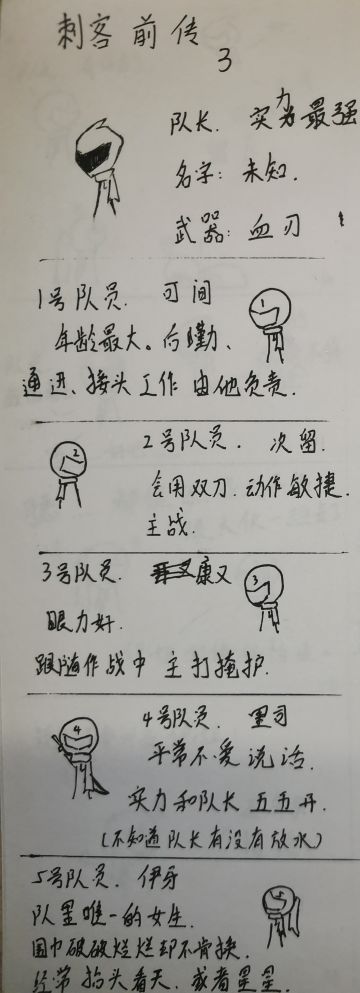 刺客前传
3
队长. 实力最强
名字: 未知.
武器: 血刃
1号队员. 可间
1
年龄最大。后勤、
通进、接头工作由他负责.
2号队员. 次留.
2
会用双刀.动作敏捷.
主战.
3号队员. 康又
3
眼力好.
跟随作战中主打掩护.
4号队员. 里司
4
平常不爱说话.
实力和队长五五开.
(不知道队长有没有放水)
5号队员. 伊牙
队里唯一的女生.
围巾破破烂烂却不肯换.
经常抬头看天.或者星星.